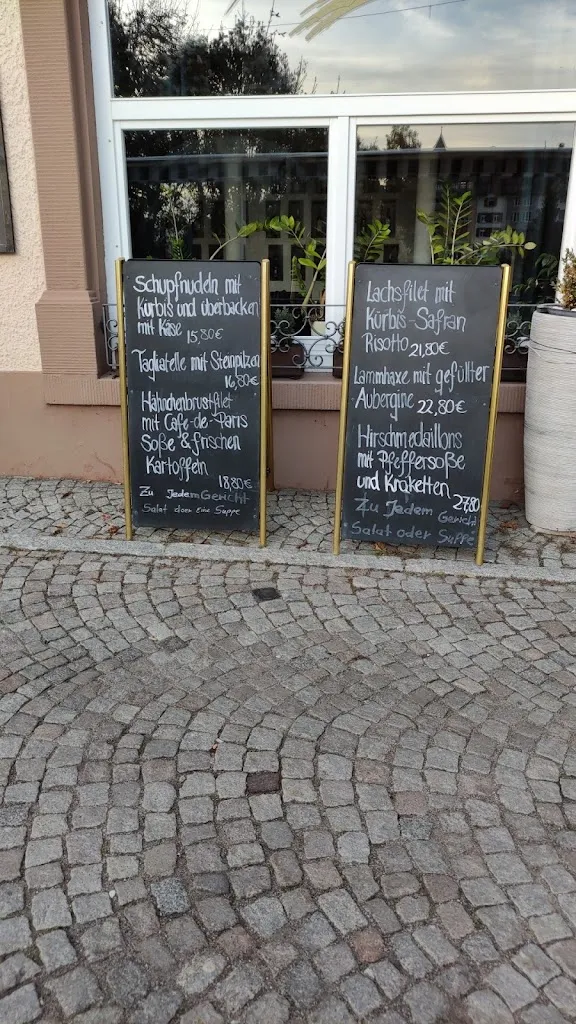 Schupfnudeln mit
Kürbis und überbacken
mit Käse 15,80€
Tagliatelle mit Steinpilzen
16,80€
Hähnchenbrustfilet
mit Cafe-de-Paris
Soße & frischen
Kartoffeln
18,80€
Zu Jedem Gericht
Salat doer Eine Suppe
Lachsfilet mit
Kürbis-Safran
Risotto 21,80€
Lammhaxe mit gefüllter
Aubergine 22,80€
Hirschmedaillons
mit Pfeffersoße
und Kroketten 27,80
Zu Jedem Gericht
Salat oder Suppe